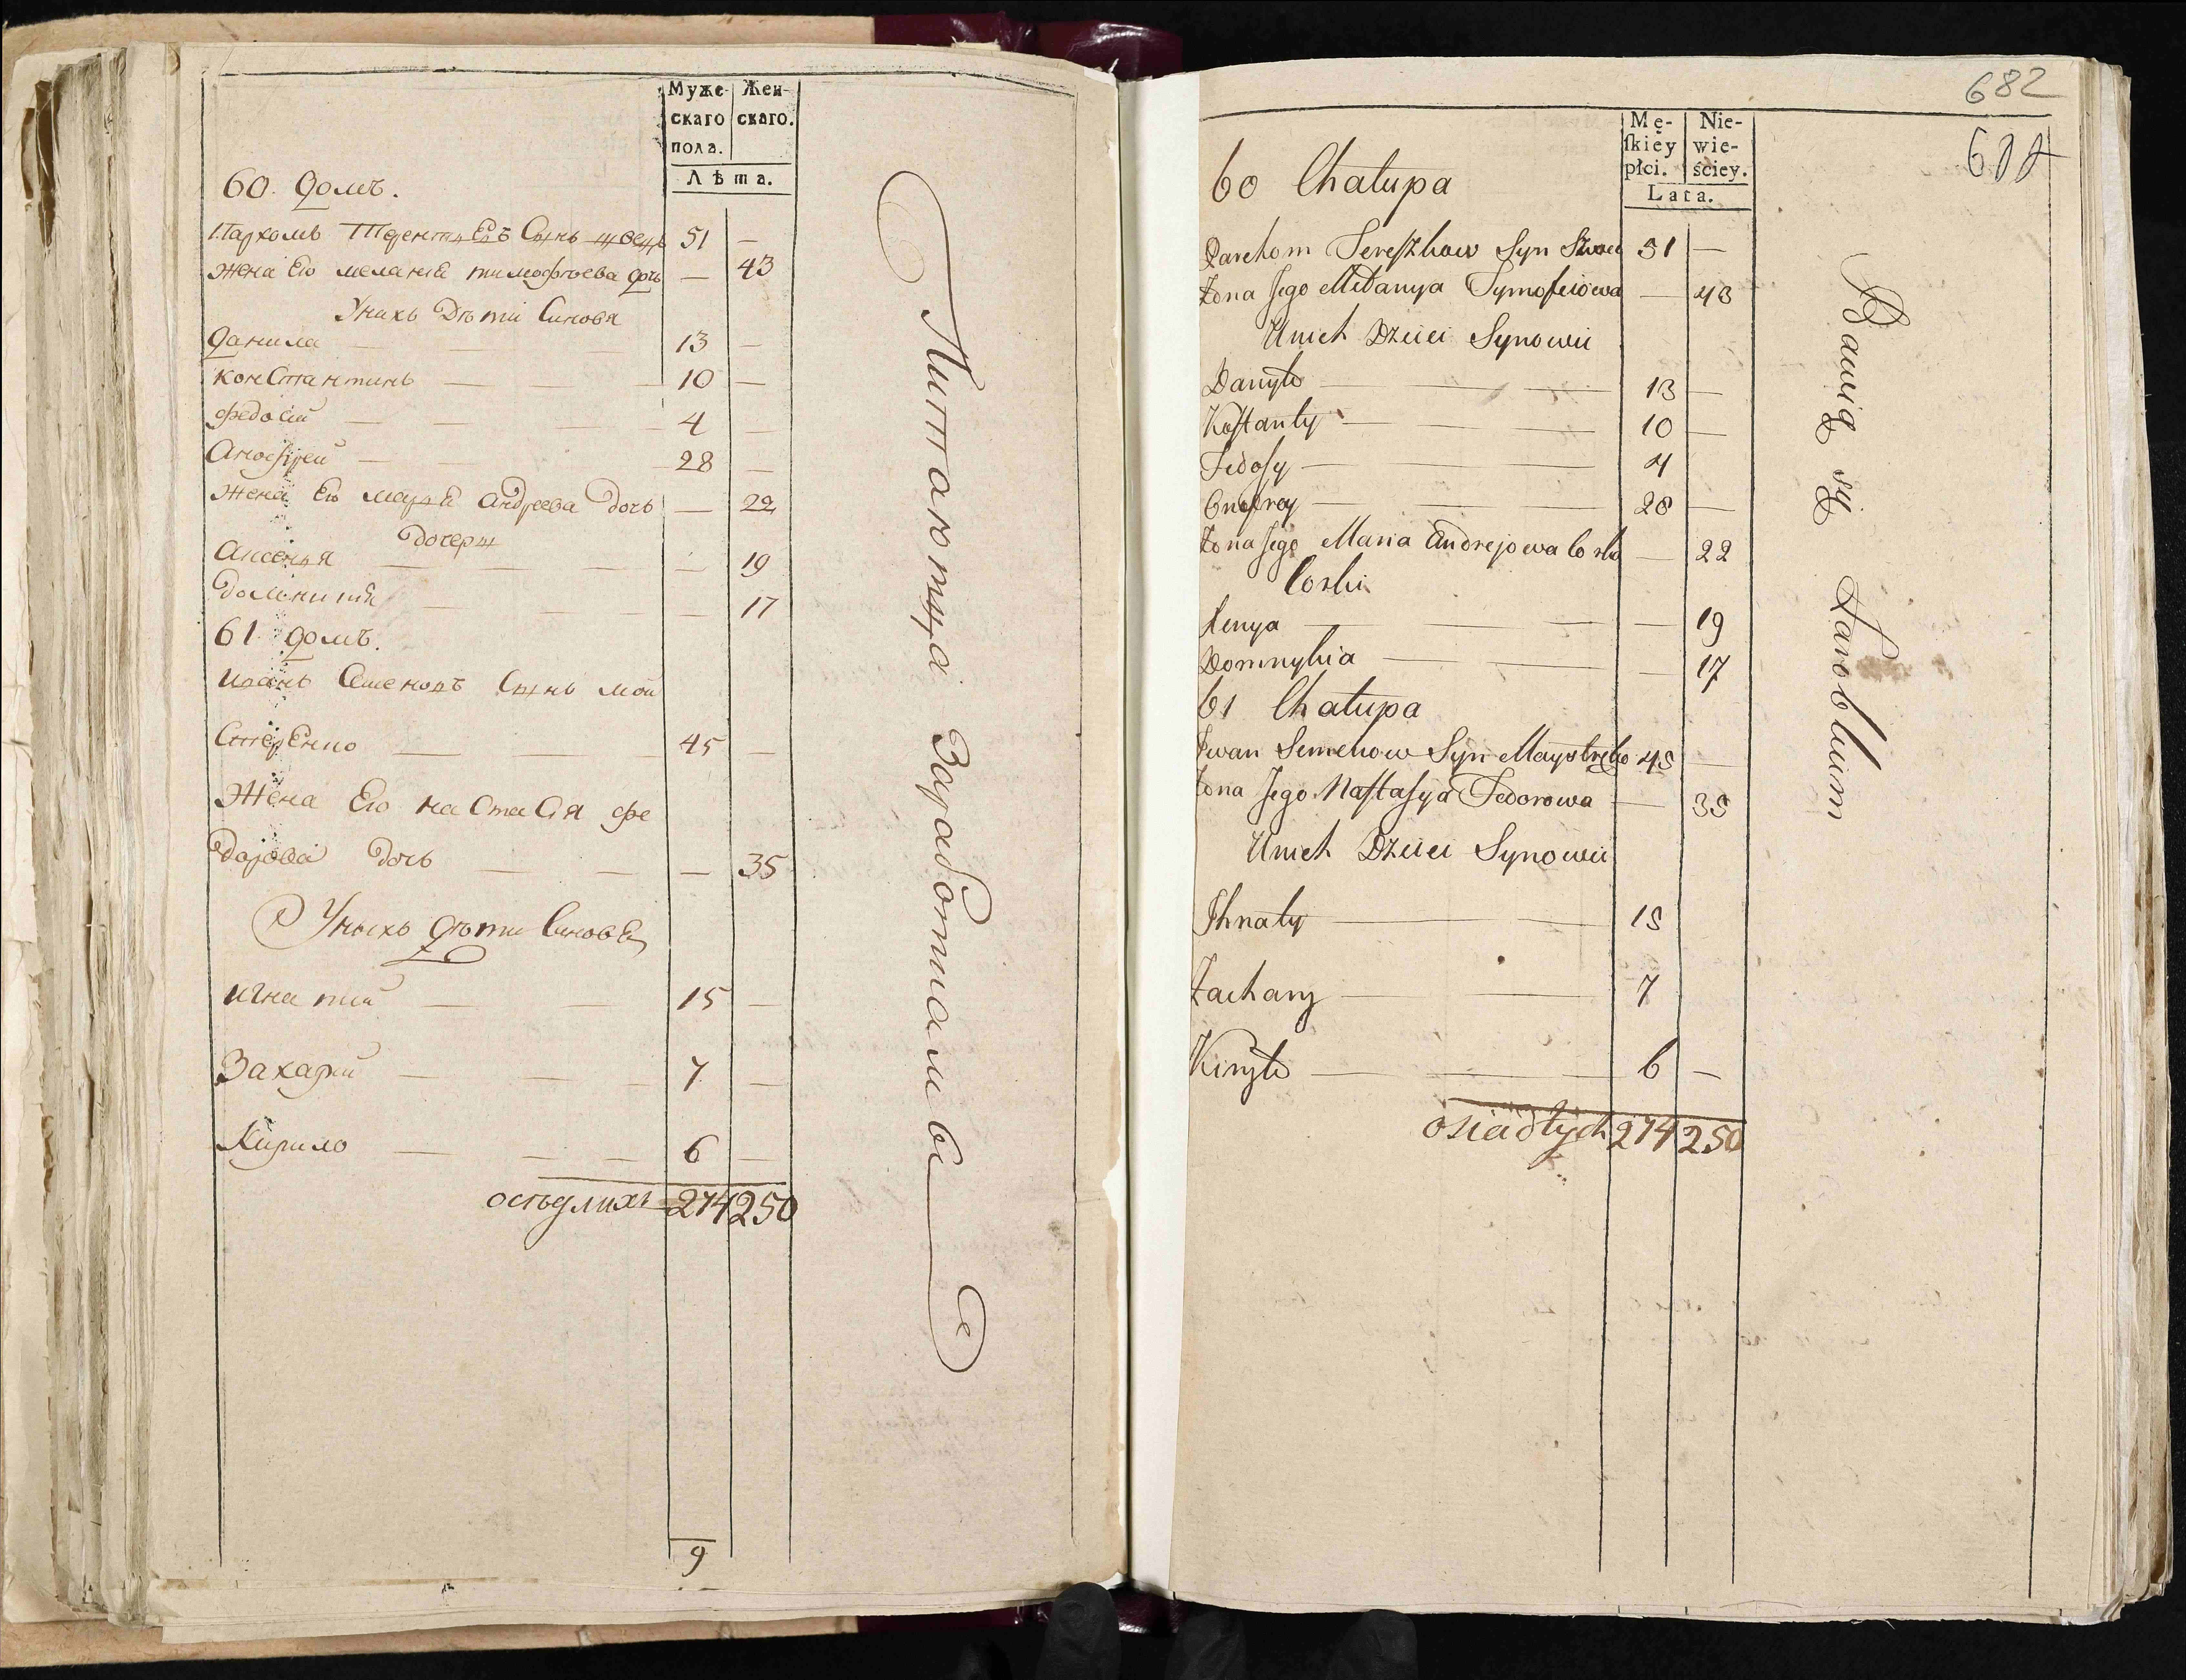 Муже-
скаго
пола.
Жен-
скаго.
Лѣта.
60. домъ.
Пархомъ Сынъ 51 —
жена Его меланія тимофѣева дочь — 43
Унихъ Дѣти Синовя
данила — 13 —
константинъ — 10 —
федосій — 4 —
Анофрей — 28 —
жена Его марія андреева дочь — 22
дочери
Аксенья — 19
домникія — 17
61 домъ.
иванъ Семеновъ Сынъ май
Стренко — 45 —
Жена Его настасія фе
дорова дочь — 35
Унихъ дѣти Синовя
игнатій — 15 —
Захарій — 7 —
Кирило — 6 —
осѣдлихъ 274 250
9
Питаютца Заработками
682
Mę-
ſkiey
płci.
Nie-
wie-
ściey.
Lata.
60 Chałupa
Parchom Syn 51 —
Żona Jego Melanya Tymofeiowa — 43
Unich Dzieci Synowii
Danyło — 13 —
Koſtanty — 10 —
Fedoſy — 4
Onofrey — 28 —
Żona Jego Maria Andrejowa Corka — 22
Corki
Xenya — 19
Domnykia — 17
61 Chałupa
Iwan Semenow Syn Maystrenko 45 —
Żona Jego Naſtaſya Fedorowa — 35
Unich Dzieci Synowii
Ihnaty — 15
Zachary — 7
Kiryło — 6 —
osiadłych 274 250
Bawią się Zarobkiem